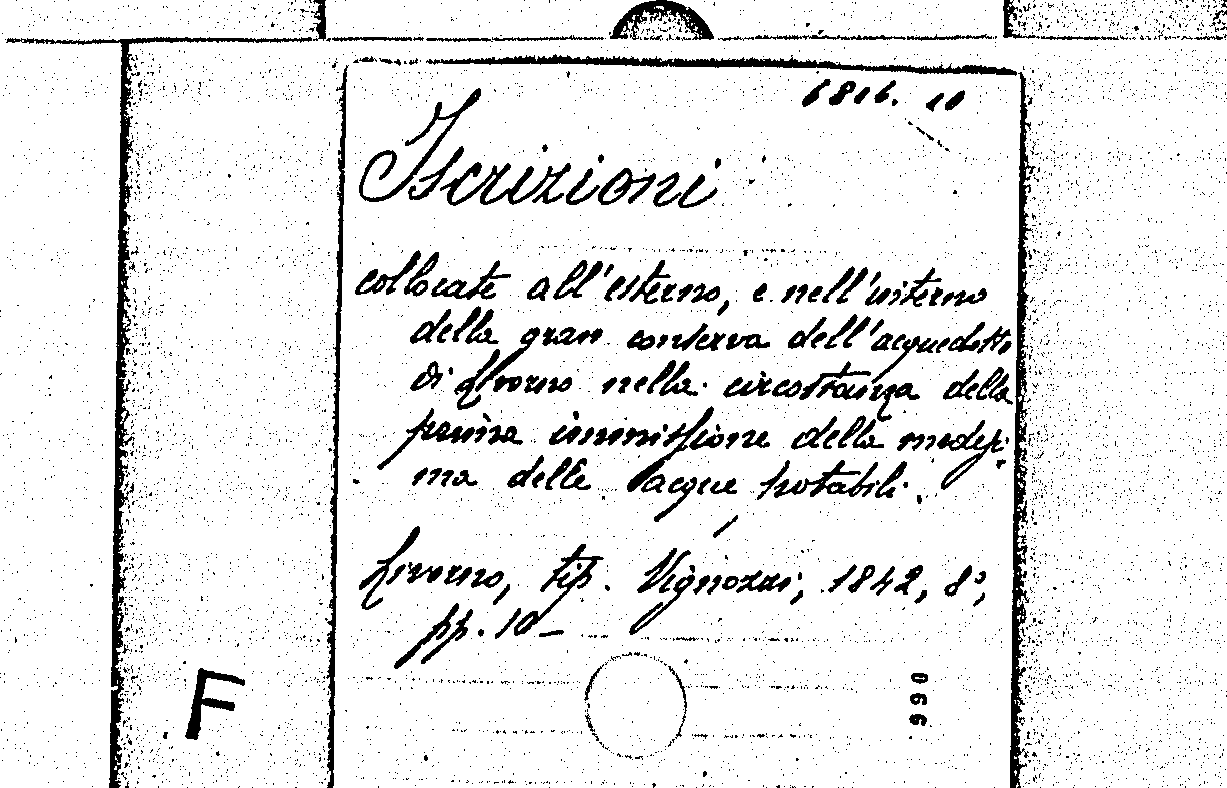 6816. 10
Iscrizioni
collocate all'esterno, e nell'interno
della gran conserva dell'acquedotto
di Livorno nella circostanza della
prima immissione della medesi
ma delle acque potabili.
Livorno, tip. Vignozzi, 1842, 8°,
pp. 10 —
F
990